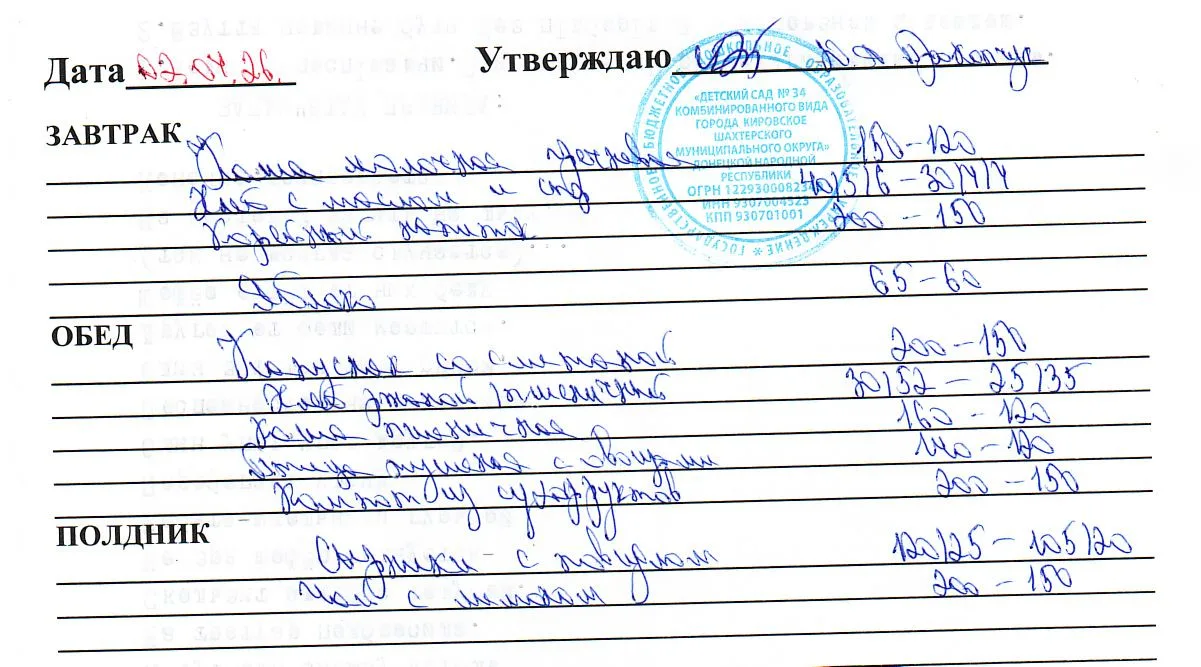 Дата 02.04.26. Утверждаю Ю.А
ЗАВТРАК
Каша молочная гречневая 150-120
Хлеб с маслом и сыр 40/5/6 - 30/4/4
Кофейный напиток 200 - 150
Яблоко 65-60
ОБЕД
Капустняк со сметаной 200-150
Хлеб ржаной/пшеничный 30/52 - 25/35
Каша пшеничная 160 - 120
Птица тушеная с овощами 140-120
Компот из сухофруктов 200-150
ПОЛДНИК
Сырники с повидлом 120/25 - 105/20
Чай с лимоном 200-150
ГОСУДАРСТВЕННОЕ БЮДЖЕТНОЕ ДОШКОЛЬНОЕ ОБРАЗОВАТЕЛЬНОЕ УЧРЕЖДЕНИЕ *
«ДЕТСКИЙ САД № 34
КОМБИНИРОВАННОГО ВИДА
ГОРОДА КИРОВСКОЕ
ШАХТЕРСКОГО
МУНИЦИПАЛЬНОГО ОКРУГА»
ДОНЕЦКОЙ НАРОДНОЙ
РЕСПУБЛИКИ
ОГРН
ИНН 9307004523
КПП 930701001